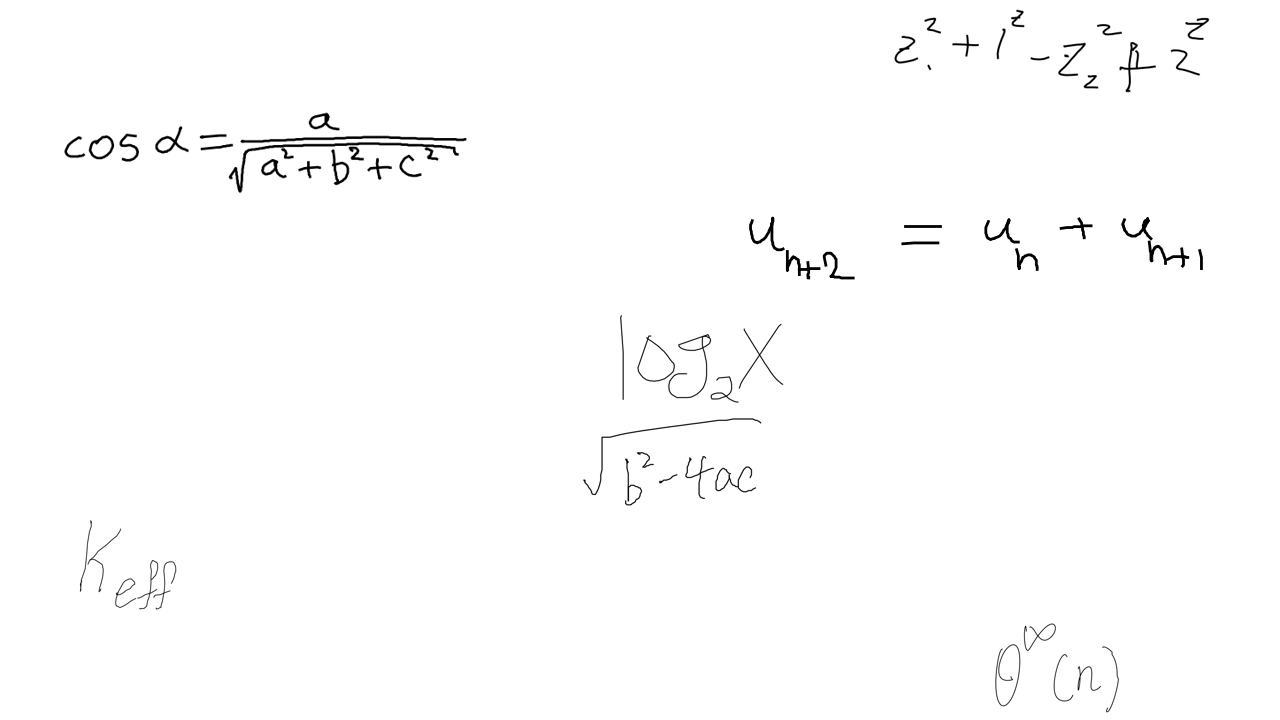 z.² + 1² - z₂² + 2²
cos α = a / √(a² + b² + c²)
u_{n+2} = u_n + u_{n+1}
log₂ x
√(b² - 4ac)
K_{eff}
θ^∞(n)